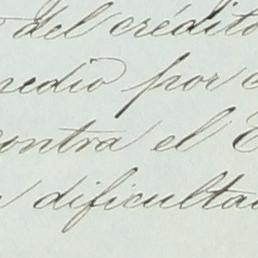 del crédito
medio por
contra el
dificulta